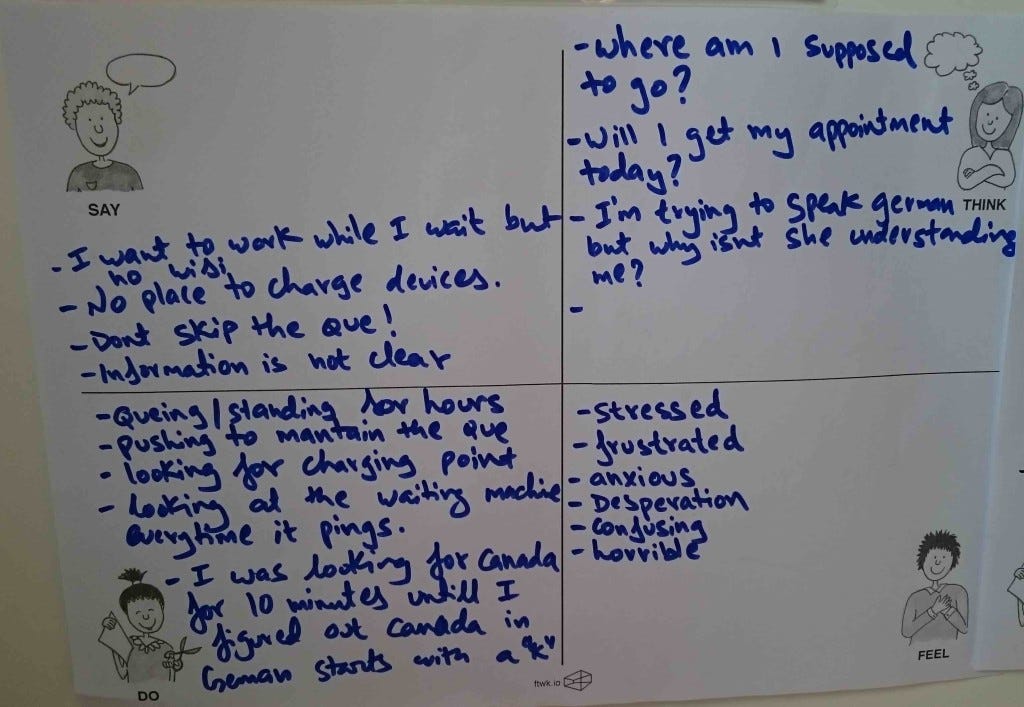 SAY
- I want to work while I wait but
no wifi
- No place to charge devices.
- Dont skip the que!
- Information is not clear
- where am I supposed
to go?
- Will I get my appointment
today?
THINK
- I'm trying to speak german
but why isnt she understanding
me?
-
- Queing/standing for hours
- pushing to mantain the que
- looking for charging point
- looking at the waiting machine
everytime it pings.
- I was looking for Canada
for 10 minutes untill I
figured out Canada in
German starts with a "K"
DO
- stressed
- frustrated
- anxious
- Desperation
- confusing
- horrible
FEEL
ftwk.io